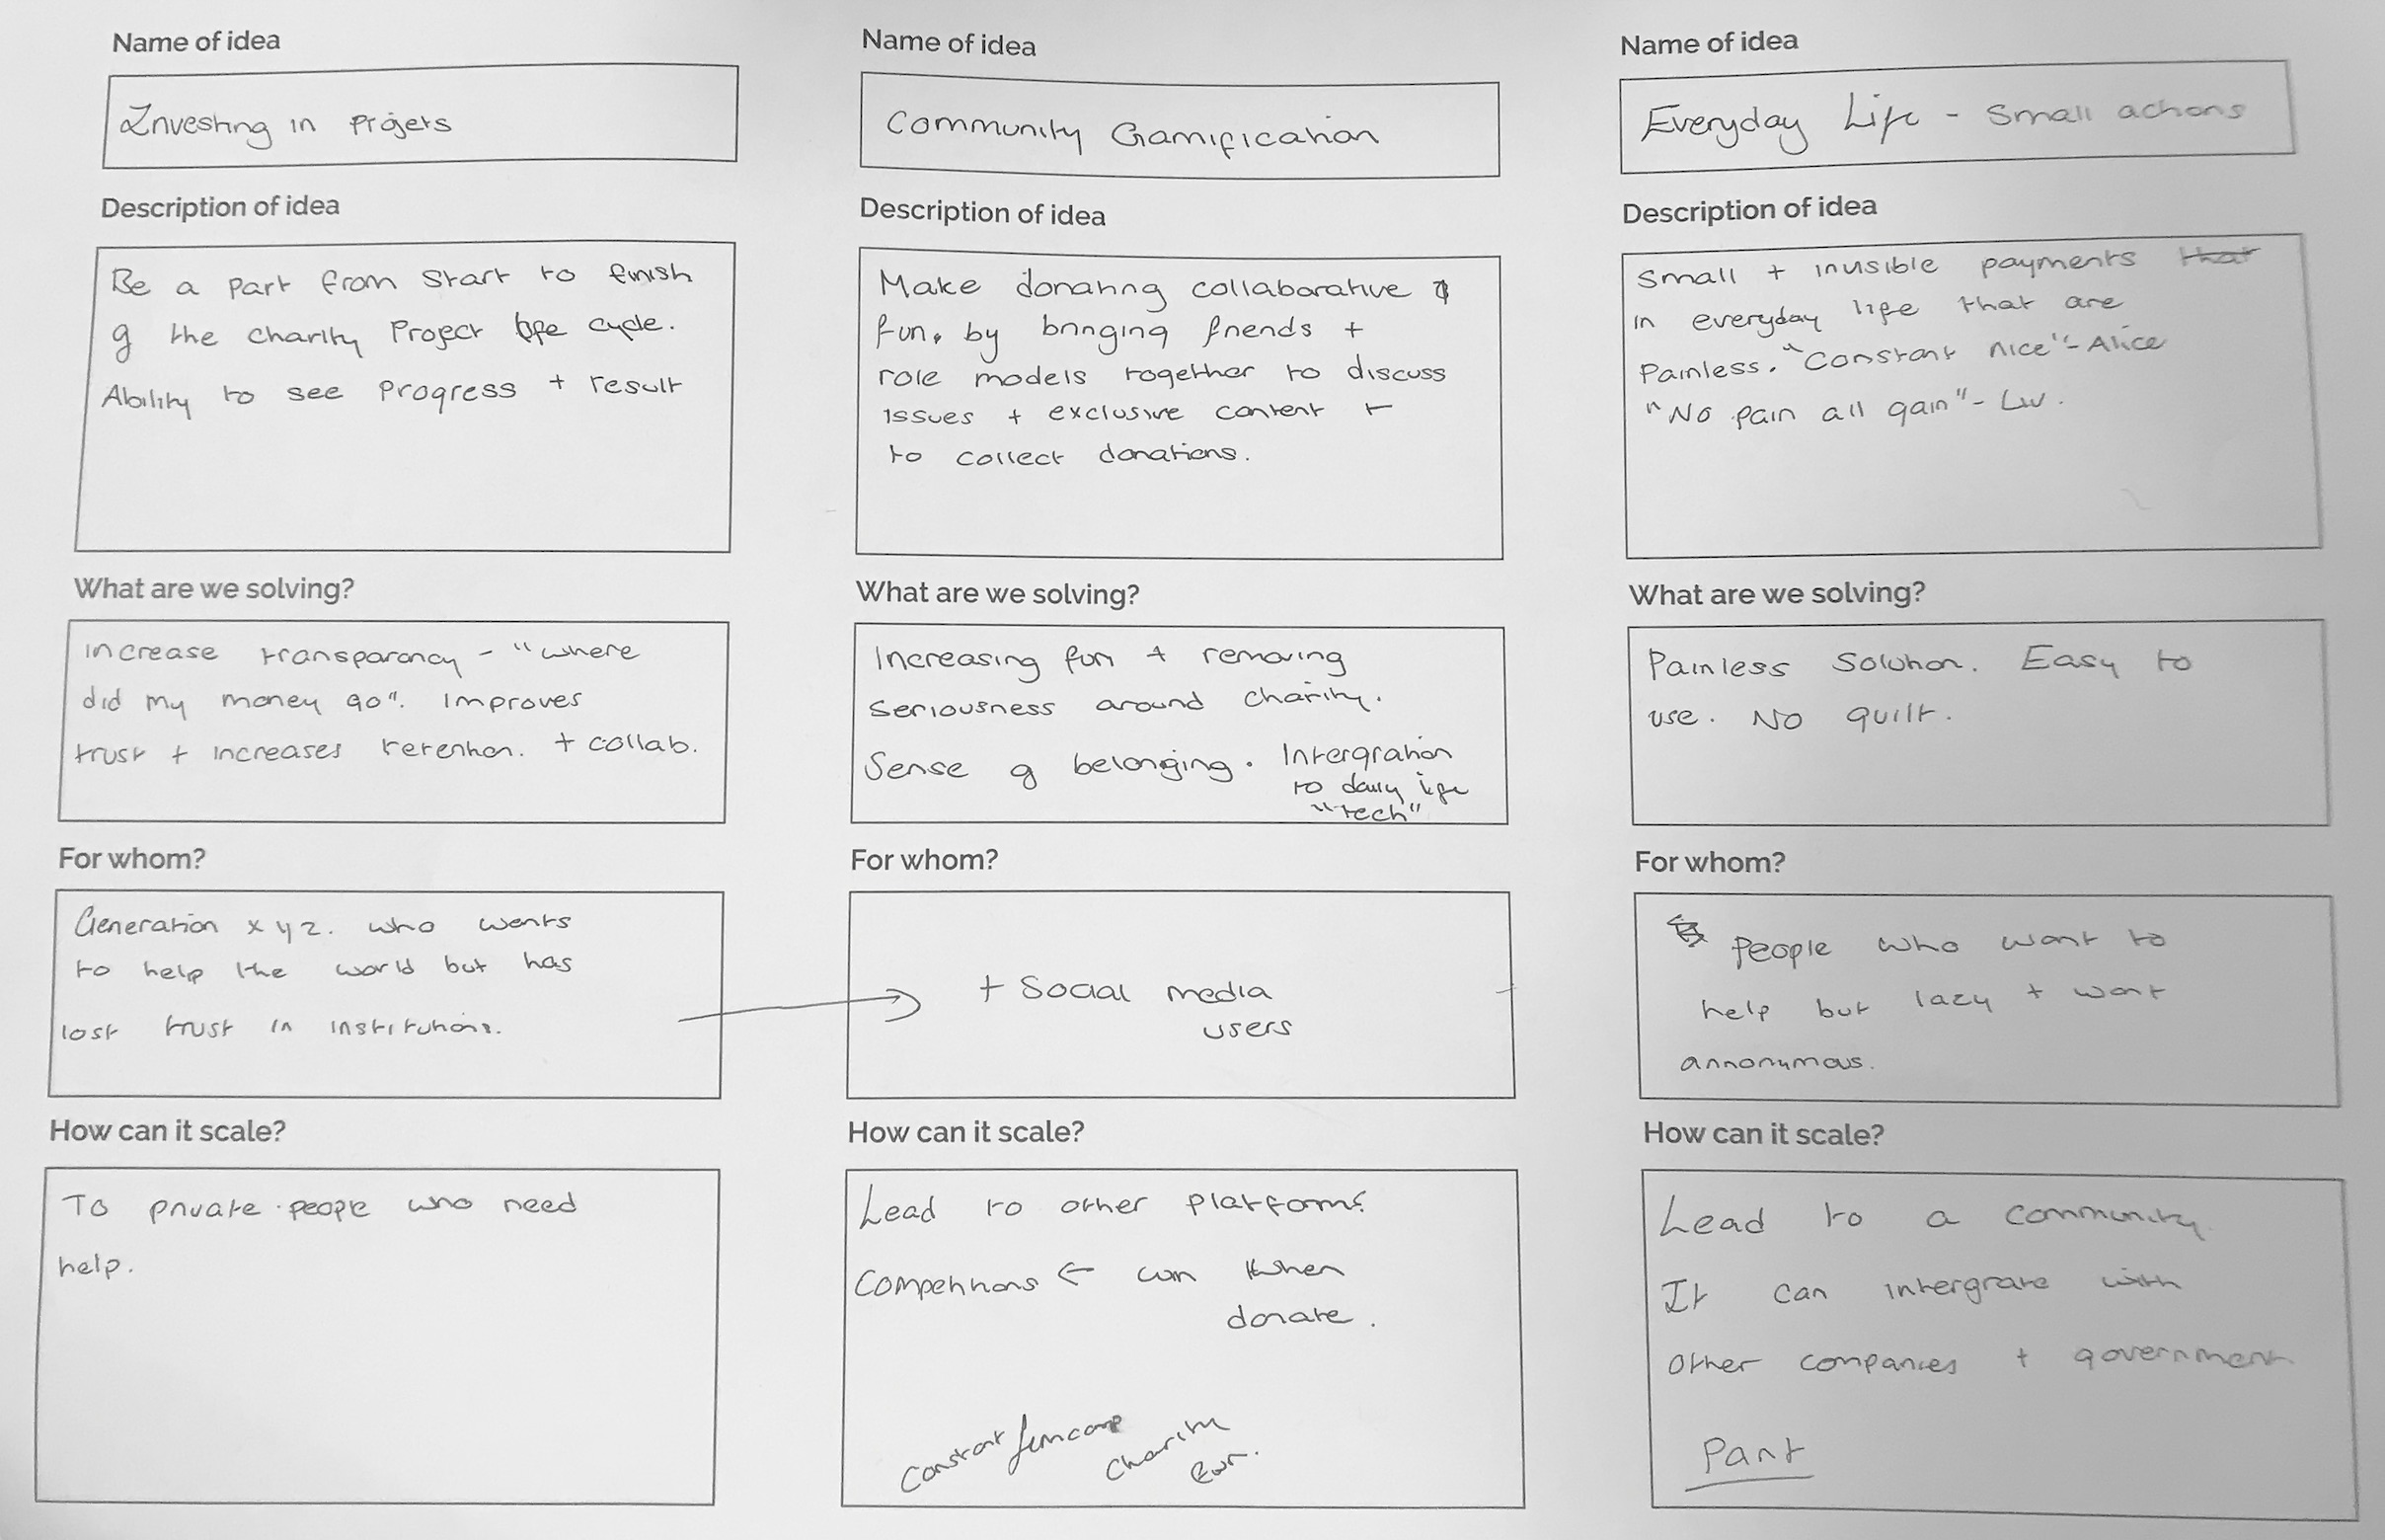 Name of idea
Investing in Projets
Description of idea
Be a part from start to finish
of the charity Project life cycle.
Ability to see Progress + result
What are we solving?
Increase transparancy - "where
did my money go". Improves
trust + increases retention. + collab.
For whom?
Generation x y z. who wants
to help the world but has
lost trust in institutions.
How can it scale?
To private people who need
help.
Name of idea
Community Gamification
Description of idea
Make donating collaborative
fun, by bringing friends +
role models together to discuss
issues + exclusive content +
to collect donations.
What are we solving?
Increasing fun + removing
seriousness around charity.
Sense of belonging. Intergration
to daily life
"tech"
For whom?
+ Social media
users
How can it scale?
Lead to other platforms
Competitions ← win when
donate.
Constant
charity
Name of idea
Everyday Life - Small actions
Description of idea
Small + invisible payments that
in everyday life that are
Painless. "Constant nice" - Alice
"No pain all gain" - Liv.
What are we solving?
Painless Solution. Easy to
use. No guilt.
For whom?
People who want to
help but lazy + want
annonymous.
How can it scale?
Lead to a community.
It can intergrate with
other companies + government
Pant